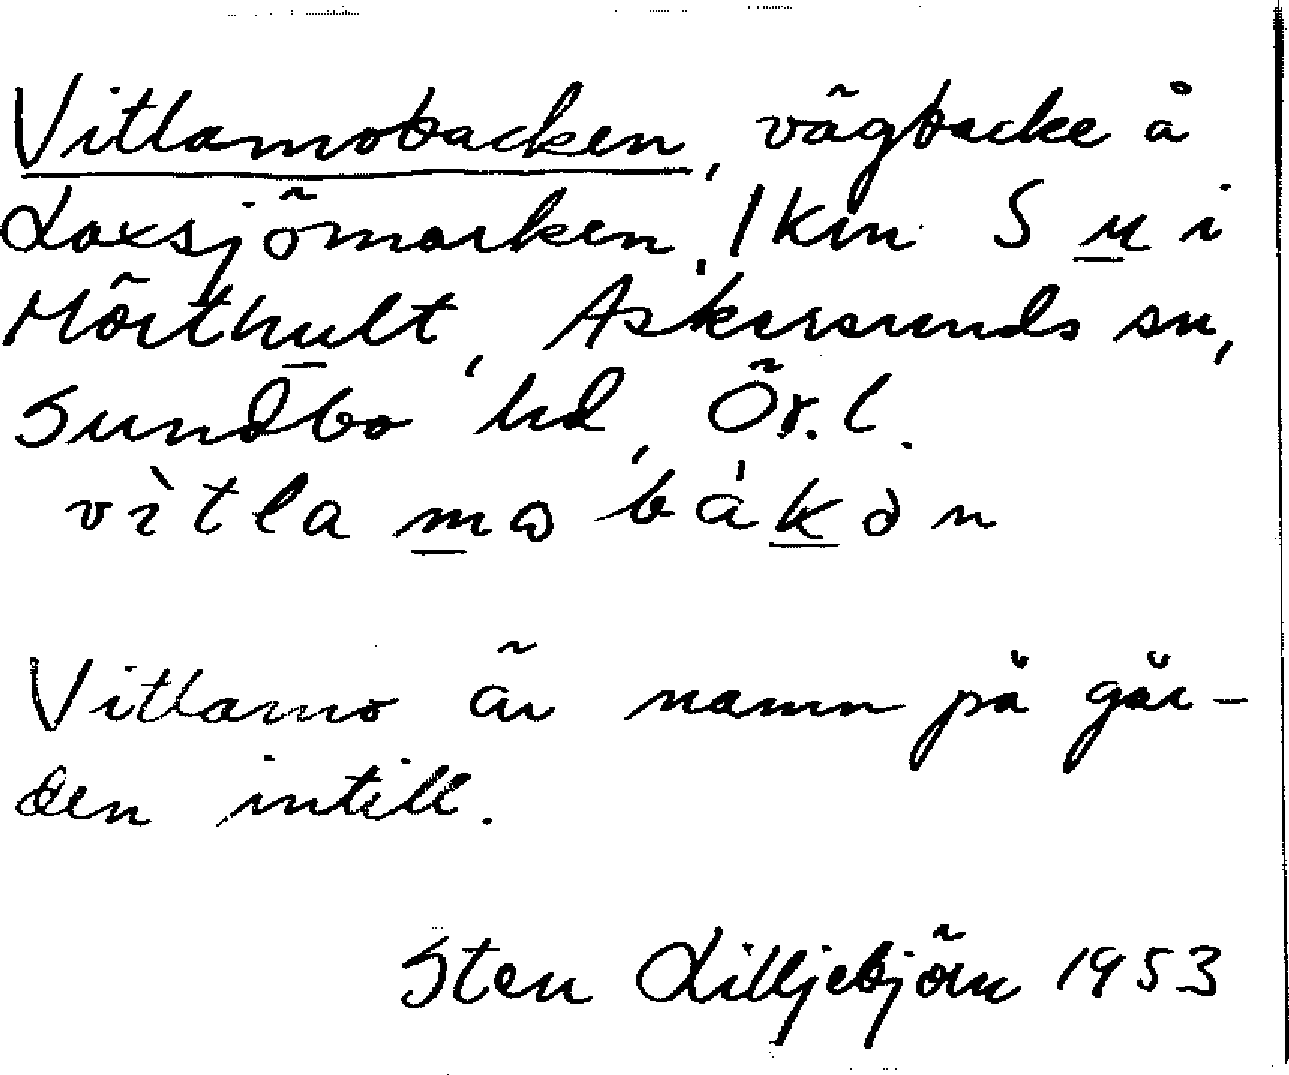 Vitlamobacken, vägbacke å
Laxsjömarken, 1 km S u i
Mörthult, Askersunds sn,
Sundbo hd, Ör. l.
vìtla mω bákən
Vitlamo är namn på går-
den intill.
Sten Lilljebjörn 1953